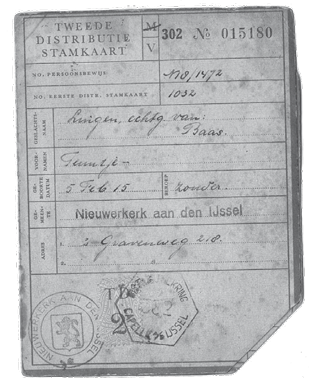 TWEEDE
DISTRIBUTIE
STAMKAART
M
V
302 No 015180
NO. PERSOONSBEWIJS N18/1472
NO. EERSTE DISTR. STAMKAART 1032
GESLACHTSNAAM Lingen, echtg van:
Baas.
VOORNAMEN Teuntje
GEBOORTEDATUM 5 Feb 15 BEROEP zonder.
GEMEENTE Nieuwerkerk aan den IJssel
ADRES 1. 's Gravenweg 218.
2.
NIEUWERKERK AAN DEN IJSSEL
CAPELLE a/d IJSSEL